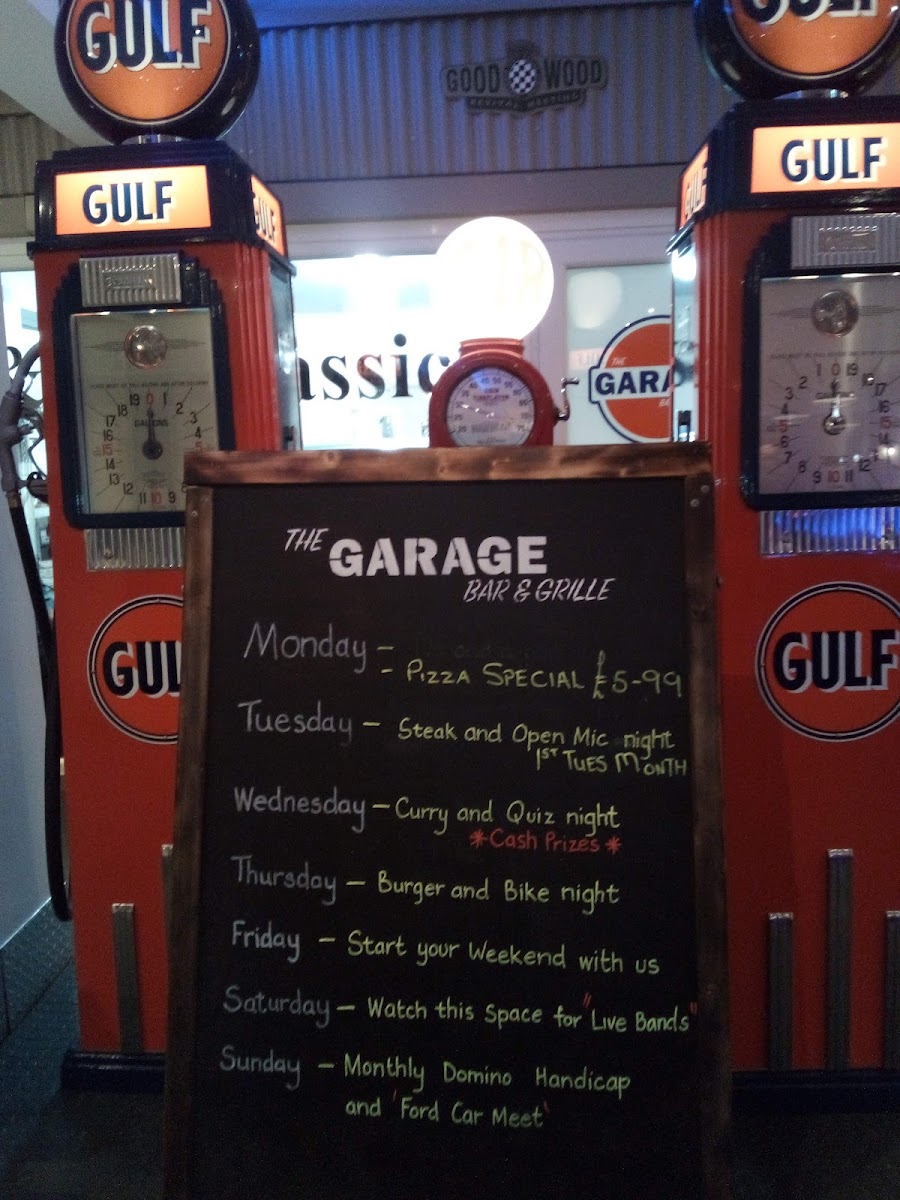 GULF
GULF
GOOD WOOD
REVIVAL MEETING
GULF
GULF
GULF
GULF
AIR
assic
THE
GARA
GALLONS
19 0 1
18 2
17 3
16 4
15 5
13
12 11 10 9
1 0 19
2
3
4
5
6
7
8 9 10 11
THE GARAGE
BAR & GRILLE
Monday =
PIZZA SPECIAL £5-99
Tuesday - Steak and Open Mic night
1ST TUES MONTH
Wednesday - Curry and Quiz night
*Cash Prizes*
Thursday - Burger and Bike night
Friday - Start your Weekend with us
Saturday - Watch this Space for "Live Bands"
Sunday - Monthly Domino Handicap
and 'Ford Car Meet'
GUL
GULF